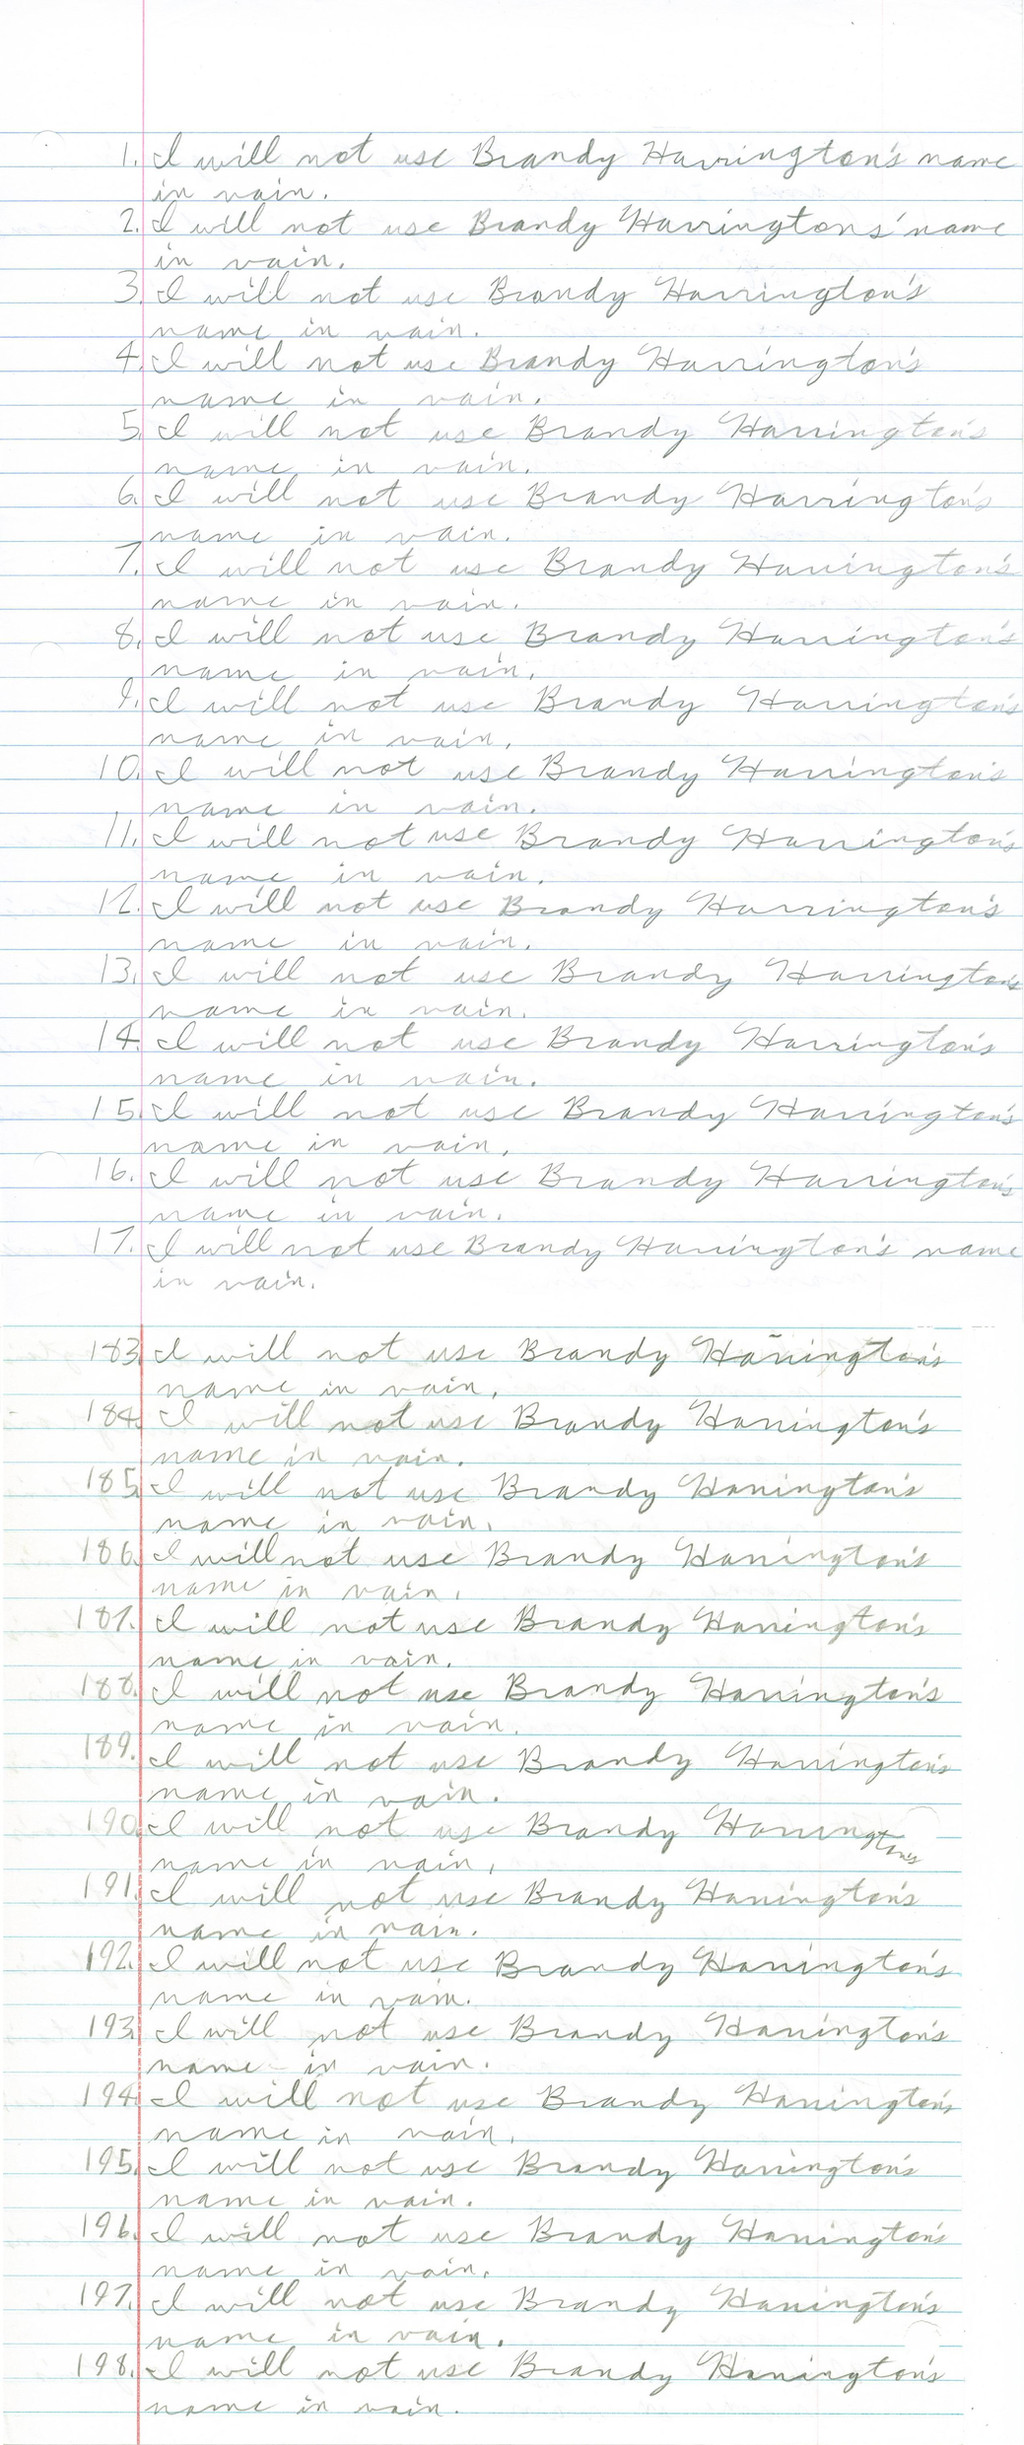 1. I will not use Brandy Harrington's name
in vain.
2. I will not use Brandy Harringtons' name
in vain.
3. I will not use Brandy Harrington's
name in vain.
4. I will not use Brandy Harrington's
name in vain.
5. I will not use Brandy Harrington's
name in vain.
6. I will not use Brandy Harrington's
name in vain.
7. I will not use Brandy Harrington's
name in vain.
8. I will not use Brandy Harrington's
name in vain.
9. I will not use Brandy Harrington's
name in vain.
10. I will not use Brandy Harrington's
name in vain.
11. I will not use Brandy Harrington's
name in vain.
12. I will not use Brandy Harrington's
name in vain.
13. I will not use Brandy Harrington's
name in vain.
14. I will not use Brandy Harrington's
name in vain.
15. I will not use Brandy Harrington's
name in vain.
16. I will not use Brandy Harrington's
name in vain.
17. I will not use Brandy Harrington's name
in vain.
183. I will not use Brandy Harrington's
name in vain.
184. I will not use Brandy Harrington's
name in vain.
185. I will not use Brandy Harrington's
name in vain.
186. I will not use Brandy Harrington's
name in vain.
187. I will not use Brandy Harrington's
name in vain.
188. I will not use Brandy Harrington's
name in vain.
189. I will not use Brandy Harrington's
name in vain.
190. I will not use Brandy Harrington's
name in vain.
191. I will not use Brandy Harrington's
name in vain.
192. I will not use Brandy Harrington's
name in vain.
193. I will not use Brandy Harrington's
name in vain.
194. I will not use Brandy Harrington's
name in vain.
195. I will not use Brandy Harrington's
name in vain.
196. I will not use Brandy Harrington's
name in vain.
197. I will not use Brandy Harrington's
name in vain.
198. I will not use Brandy Harrington's
name in vain.